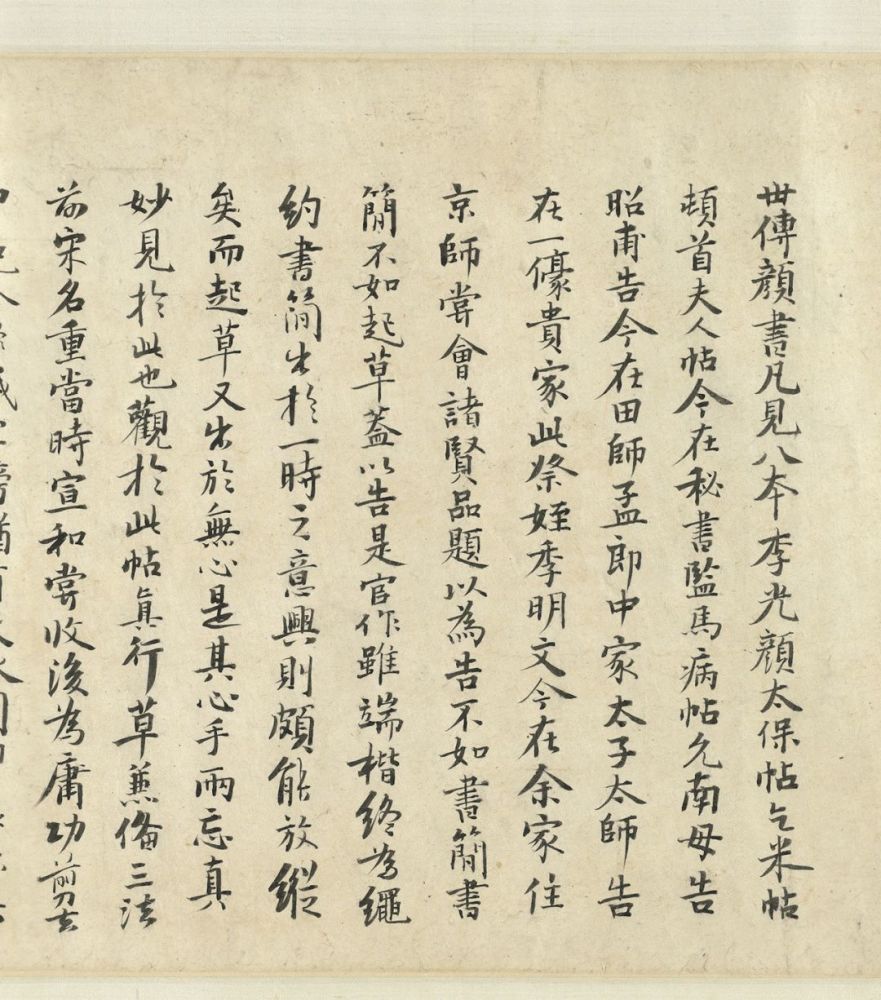 世傳顔書凡見八本李光顔太保帖乞米帖
頓首夫人帖今在秘書監馬病帖允南母告
昭甫告今在田師孟郎中家太子太師告
在一㒙貴家此祭姪季明文今在余家住
京師嘗會諸賢品題以為告不如書簡書
簡不如起草蓋以告是官作雖端楷終為繩
約書簡出於一時之意興則頗能放縱
矣而起草又出於無心是其心手兩忘真
妙見於此也觀於此帖真行草兼俻三法
前宋名重當時宣和嘗收後為庸功剪去